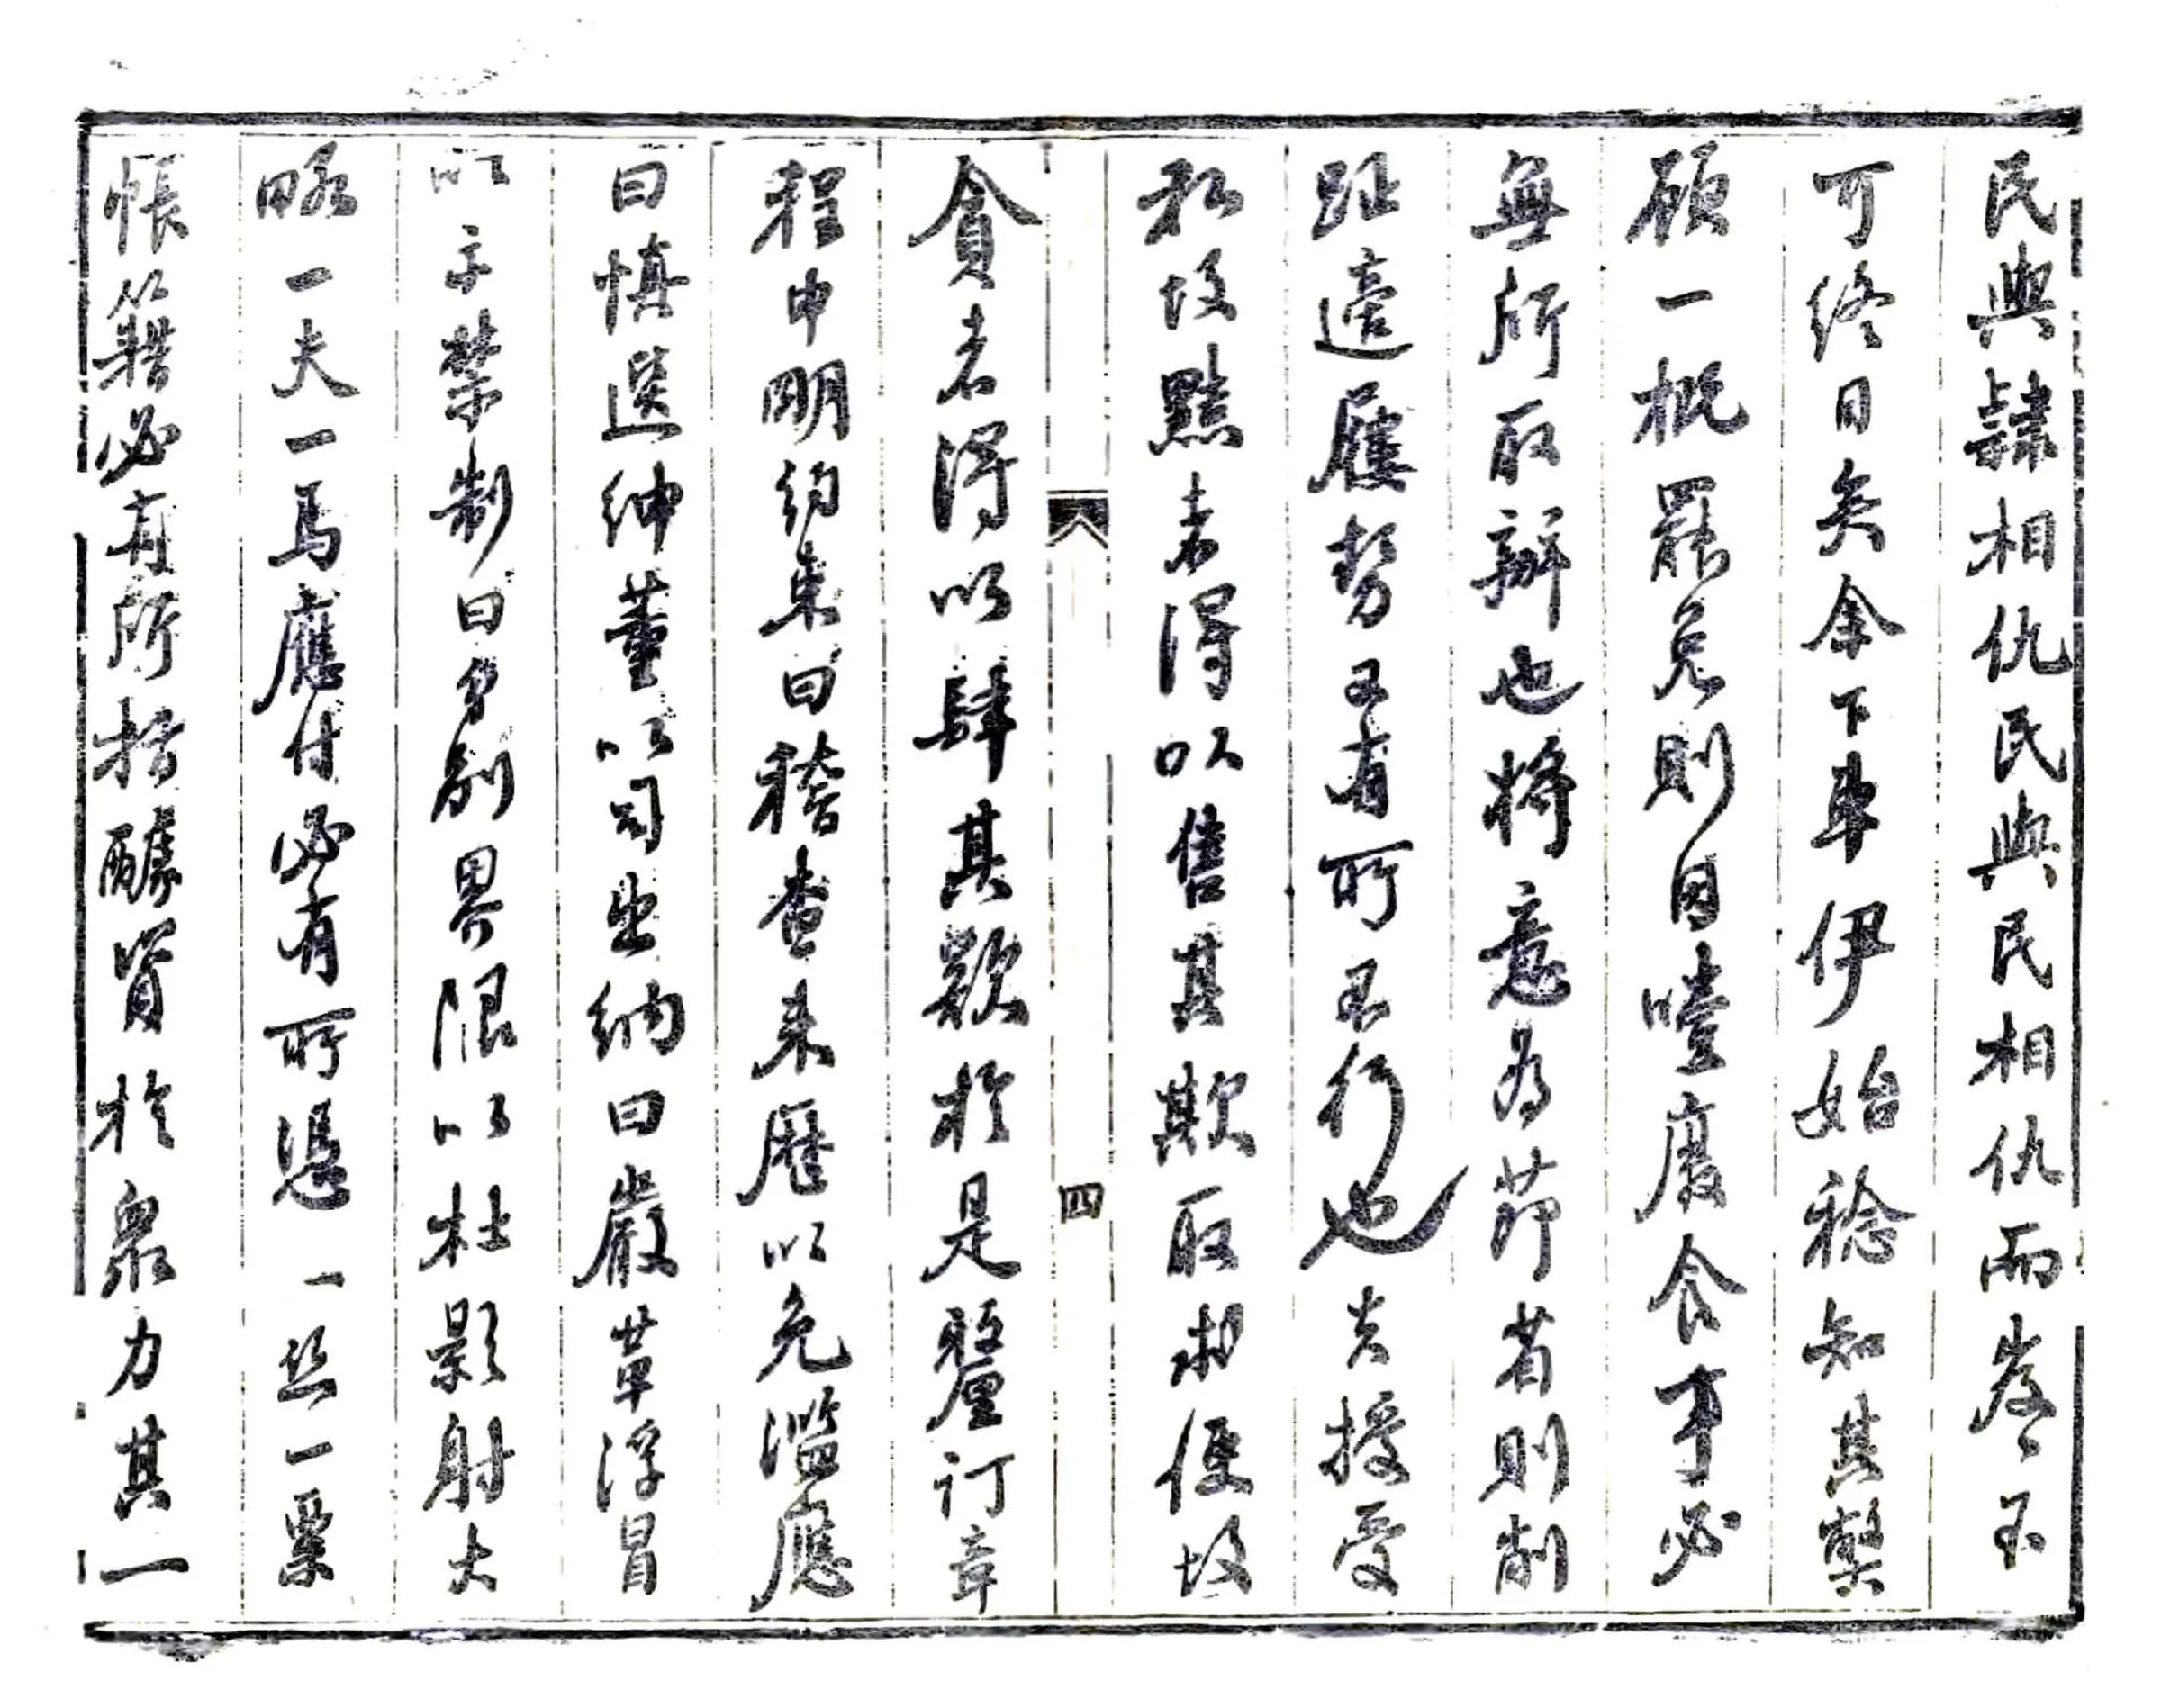 民與隸相仇民與民相仇而岌々不
可終日矣余下車伊始稔知其弊
顧一概罷免則因噎廢食事必
無所取辦也將意為節省則削
趾適屨勢又有所不行也夫授受
私故黠者得以售其欺取求便故
貪者得以肆其欺於是釐訂章
程申明約束曰稽查來歷以免濫應
曰慎選紳董以司出納曰嚴革浮冒
以示禁制曰分別界限以杜影射大
畧一夫一馬應付必有所憑一絲一粟
帳籍必有所指醵資於衆力其一
四